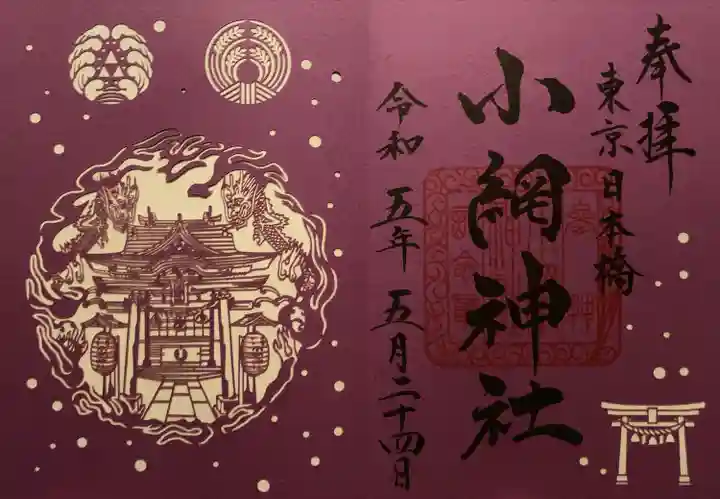 奉拝
東京日本橋
小網神社
令和 五年 五月二十四日